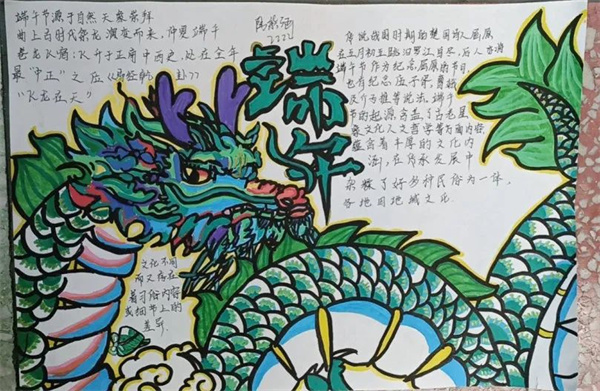 端午节源于自然天象崇拜
由上古时代祭龙演变而来，仲夏端午
苍龙七宿，飞升于正南中天，处在全年
最“中正”之位《易经乾卦》
“飞龙在天”
2022
端午
传说战国时期的楚国诗人屈原
在五月初五跳汨罗江自尽，后人亦将
端午节作为纪念屈原的节日
也有纪念伍子胥，曹娥
及介子推等说法，端午
节的起源，涵盖了古老星
象文化人文哲学等方面内容
蕴含着丰厚的文化内
涵，在传承发展中
杂糅了好多种民俗为一体，
各地因地域文化
文化不同
而又存在
着习俗内容
或细节上的
差异